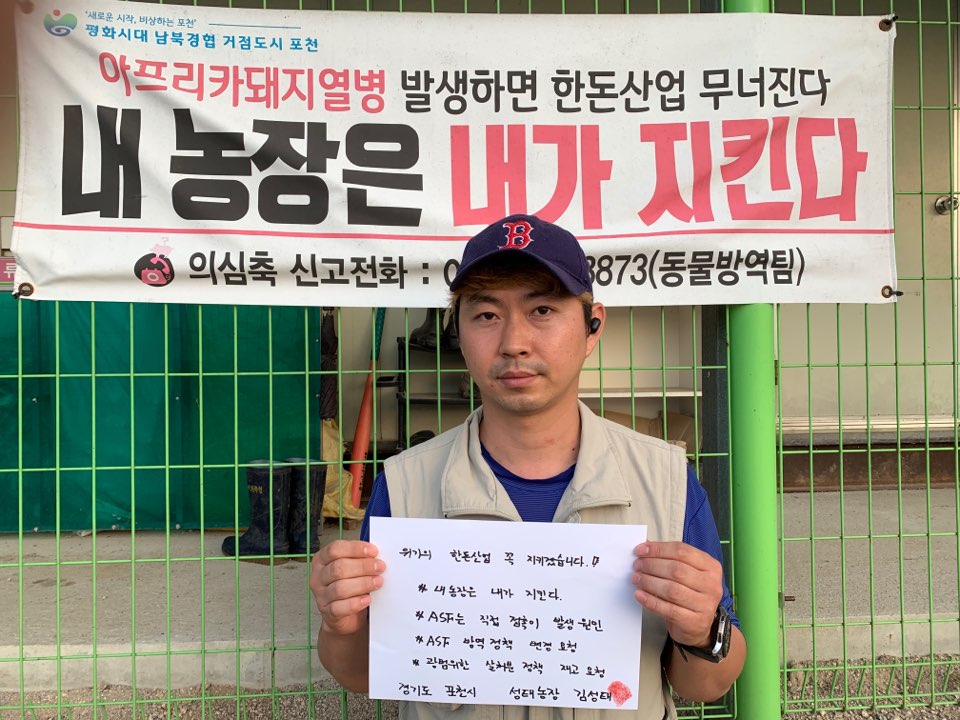 '새로운 시작, 비상하는 포천'
평화시대 남북경협 거점도시 포천
아프리카돼지열병 발생하면 한돈산업 무너진다
내 농장은 내가 지킨다
의심축 신고전화 : 0 3873(동물방역팀)
B
위기의 한돈산업 꼭 지키겠습니다.!!
# 내 농장은 내가 지킨다.
# ASF는 직접 접촉이 발생 원인
# ASF 방역 정책 변경 요청
# 광범위한 살처분 정책 재고 요청
경기도 포천시 성태농장 김성태